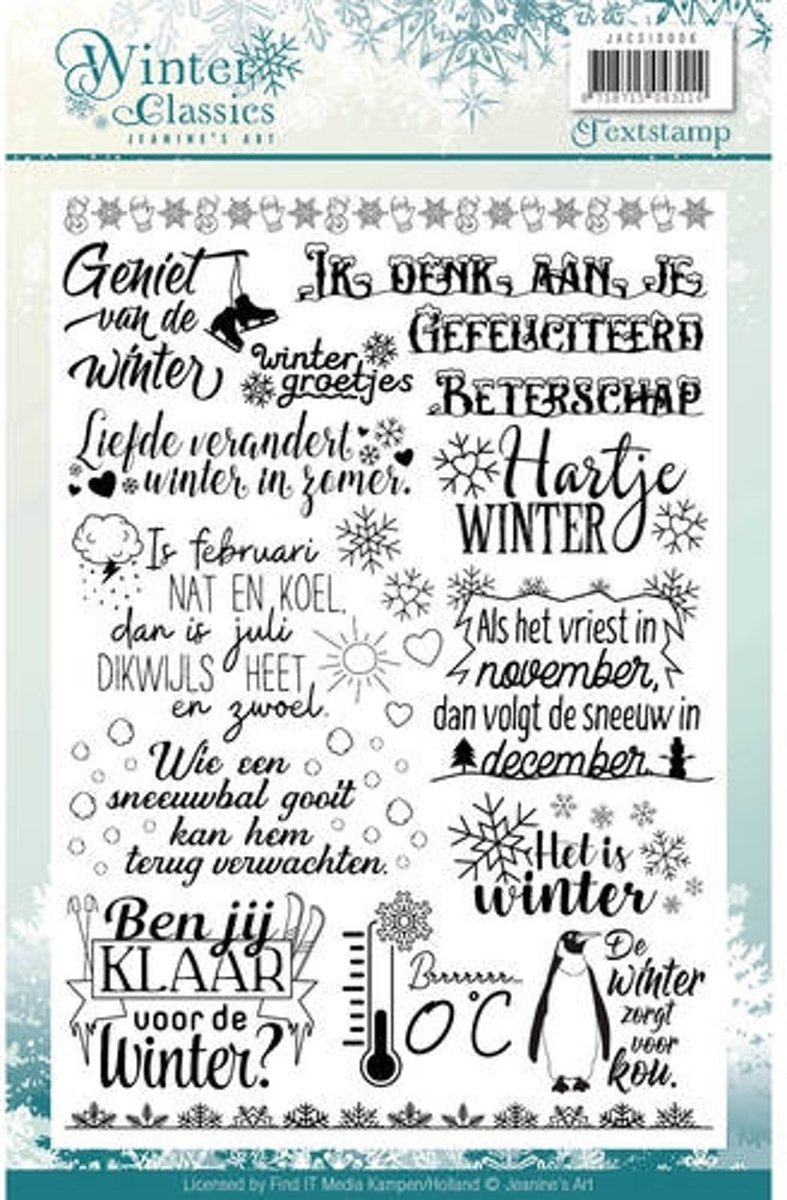 Winter
Classics
JEANINE'S ART
JACS10006
Textstamp
Geniet
van de
winter
Ik denk aan je
Gefeliciteerd
winter
groetjes
Beterschap
Liefde verandert
winter in zomer.
Hartje
WINTER
Is februari
NAT EN KOEL,
dan is juli
DIKWIJLS HEET
en zwoel.
Als het vriest in
november,
dan volgt de sneeuw in
december.
Wie een
sneeuwbal gooit
kan hem
terug verwachten.
Het is
winter
Ben jij
KLAAR
voor de
Winter?
Brrrrrrr...
0°C
De
winter
zorgt
voor
kou.
Licensed by Find IT Media Kampen/Holland © Jeanine's Art